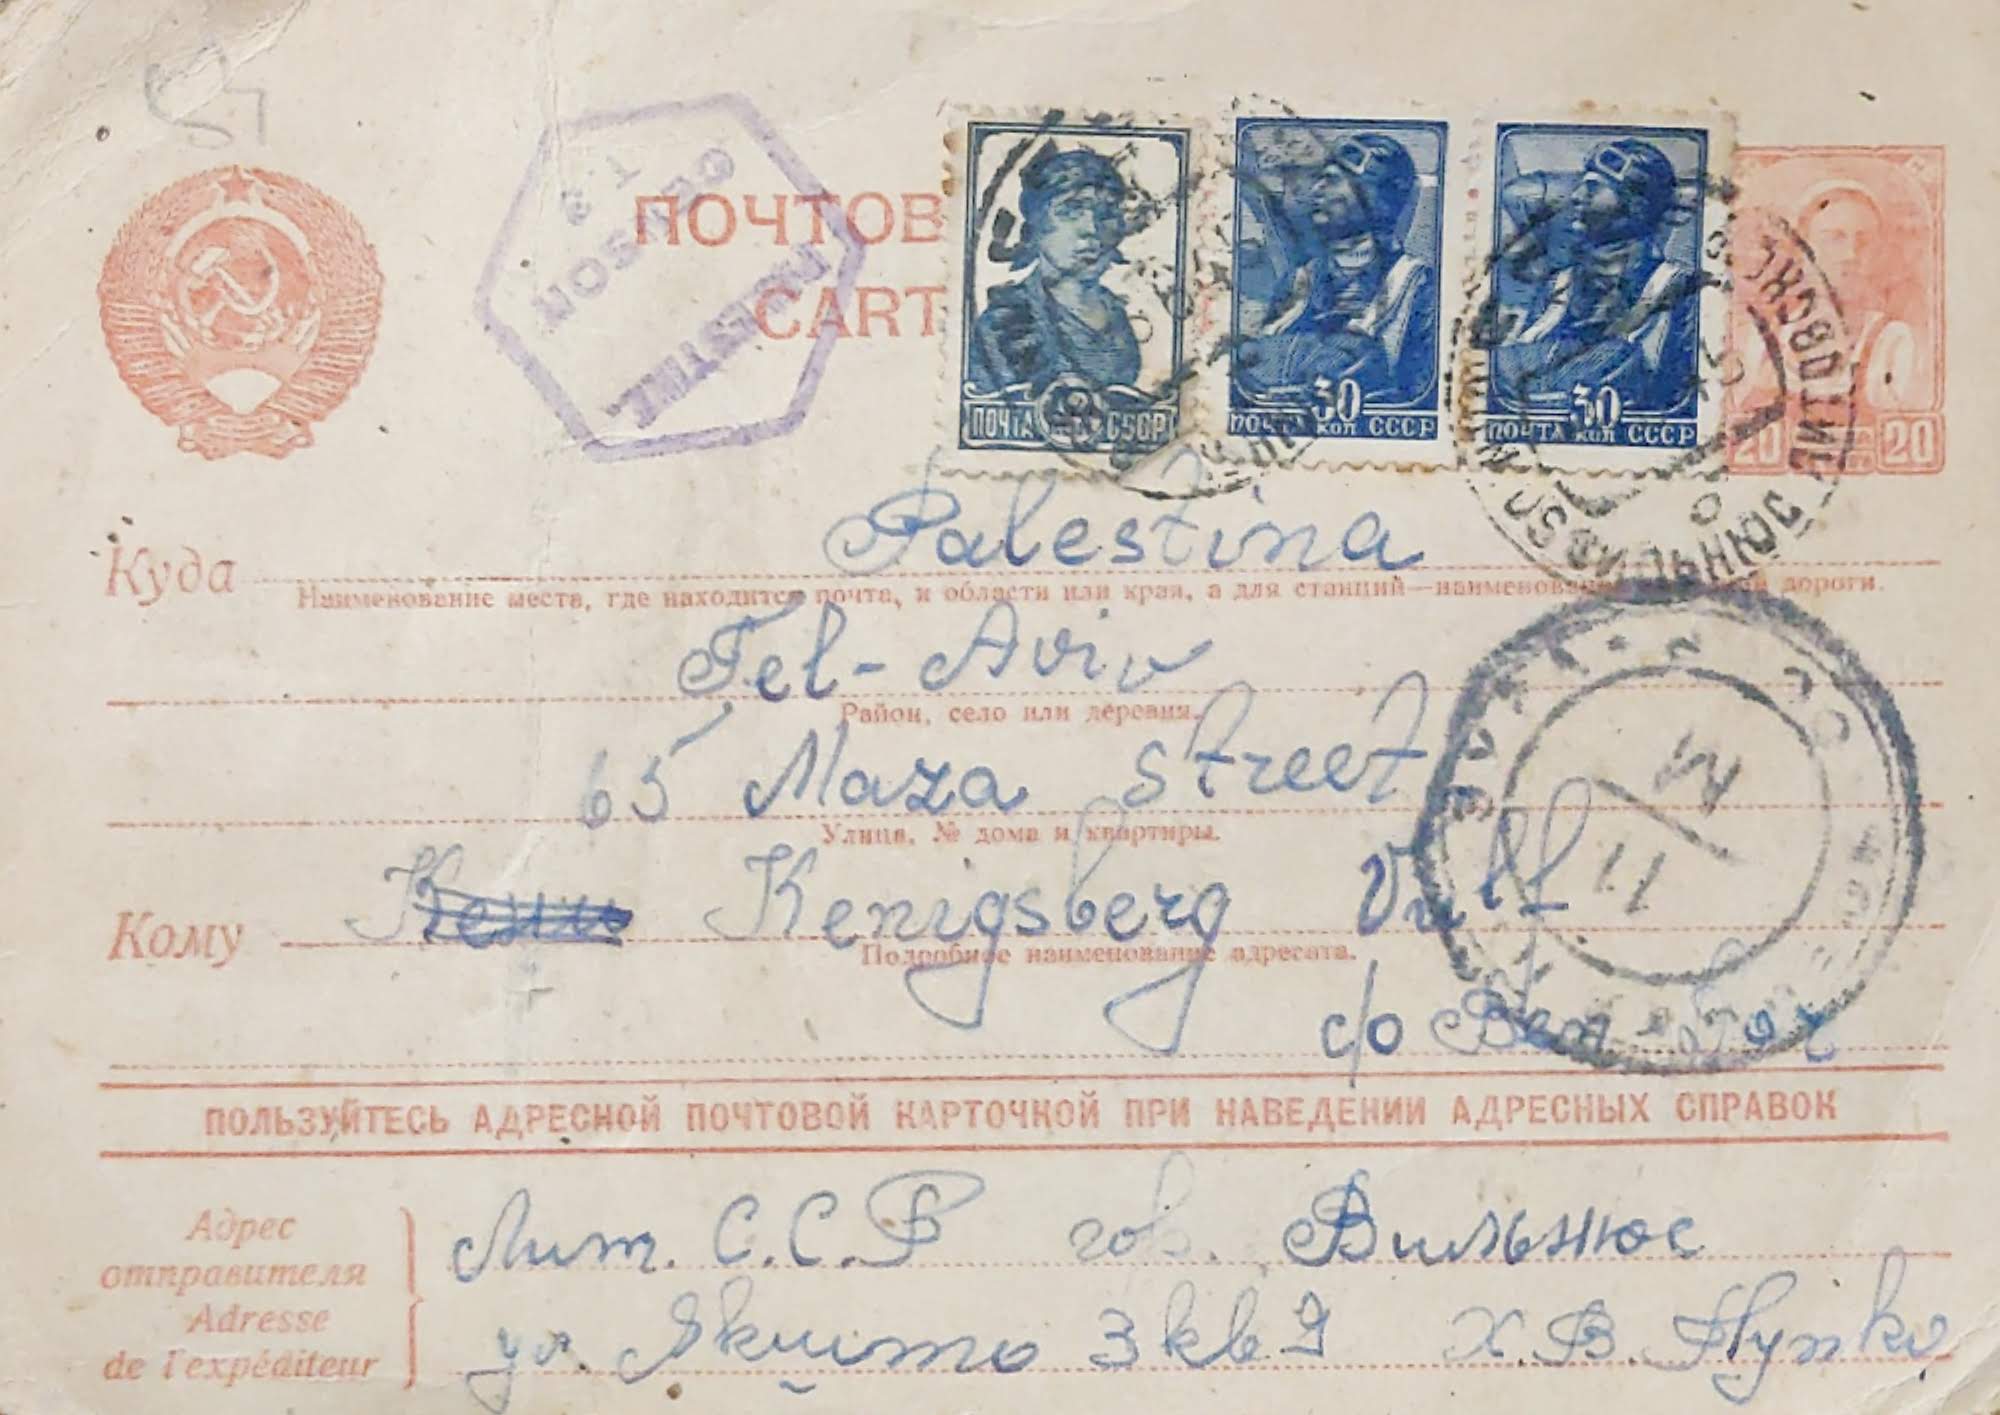 ПОЧТОВ
CART
CENSOR
T.2
PALESTINE.
ПОЧТА СССР
30
ПОЧТА коп СССР
30
ПОЧТА коп СССР
20 20
Palestina
Куда
Наименование места, где находится почта, и области или края, а для станций—наименование дороги.
Tel-Aviv
Район, село или деревня.
65 Maza street
Улица, № дома и квартиры.
Кому Kenigsberg Vulf
Подробное наименование адресата.
c/o Ben-
11
M
ПОЛЬЗУЙТЕСЬ АДРЕСНОЙ ПОЧТОВОЙ КАРТОЧКОЙ ПРИ НАВЕДЕНИИ АДРЕСНЫХ СПРАВОК
Адрес
отправителя
Adresse
de l'expéditeur
Лит. С.С.Р гор. Вильнюс
ул. 3 кв 9 Х. В.